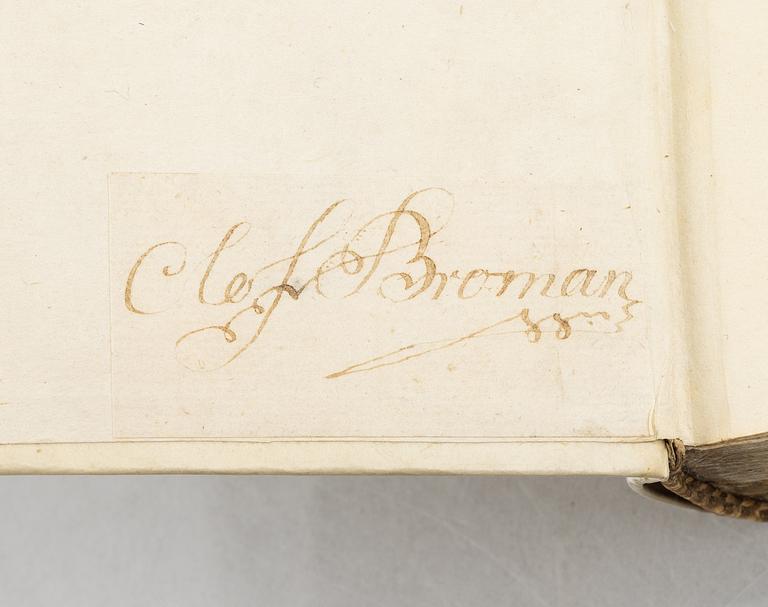 Olof Broman